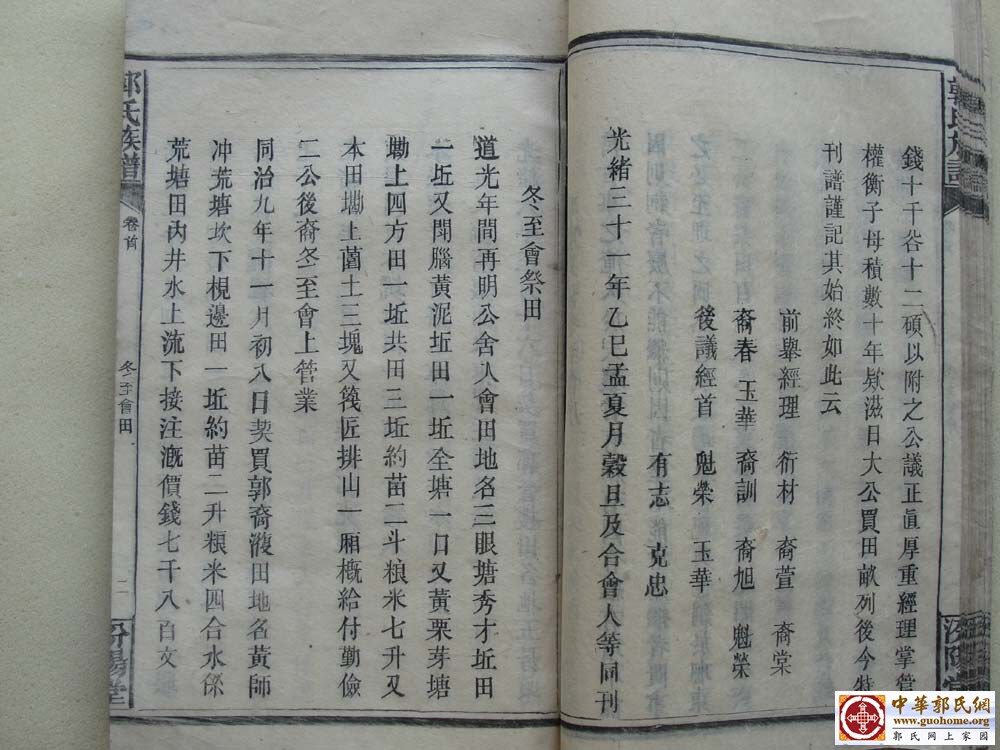 錢十千谷十二碩以附之公議正眞厚重經理掌管
權衡子母積數十年欵滋日大公買田畝列後今特
刊譜謹記其始終如此云
前舉經理 衍材 裔萱 裔棠
裔春 玉華 裔訓 裔旭 魁榮
後議經首 魁榮 玉華
有志 克忠
光緒三十一年乙巳孟夏月穀旦及合會人等同刊
郭氏族譜
汾陽堂
冬至會祭田
道光年間再明公舍入會田地名三眼塘秀才坵田
一坵又閗腦黃泥坵田一坵全塘一口又黃栗芽塘
墈上四方田一坵共田三坵約苗二斗粮米七升又
本田墈上薗土三塊又篾匠排山一厢概給付勤儉
二公後裔冬至會上管業
同治九年十一月初八日契買郭裔澓田地名黃師
冲荒塘坎下梘邊田一坵約苗二升粮米四合水係
荒塘田內井水上流下接注漑價錢七千八百文
郭氏族譜
卷首
冬至會田
二
汾陽堂
中華郭氏網
www.guohome.org
郭氏网上家园